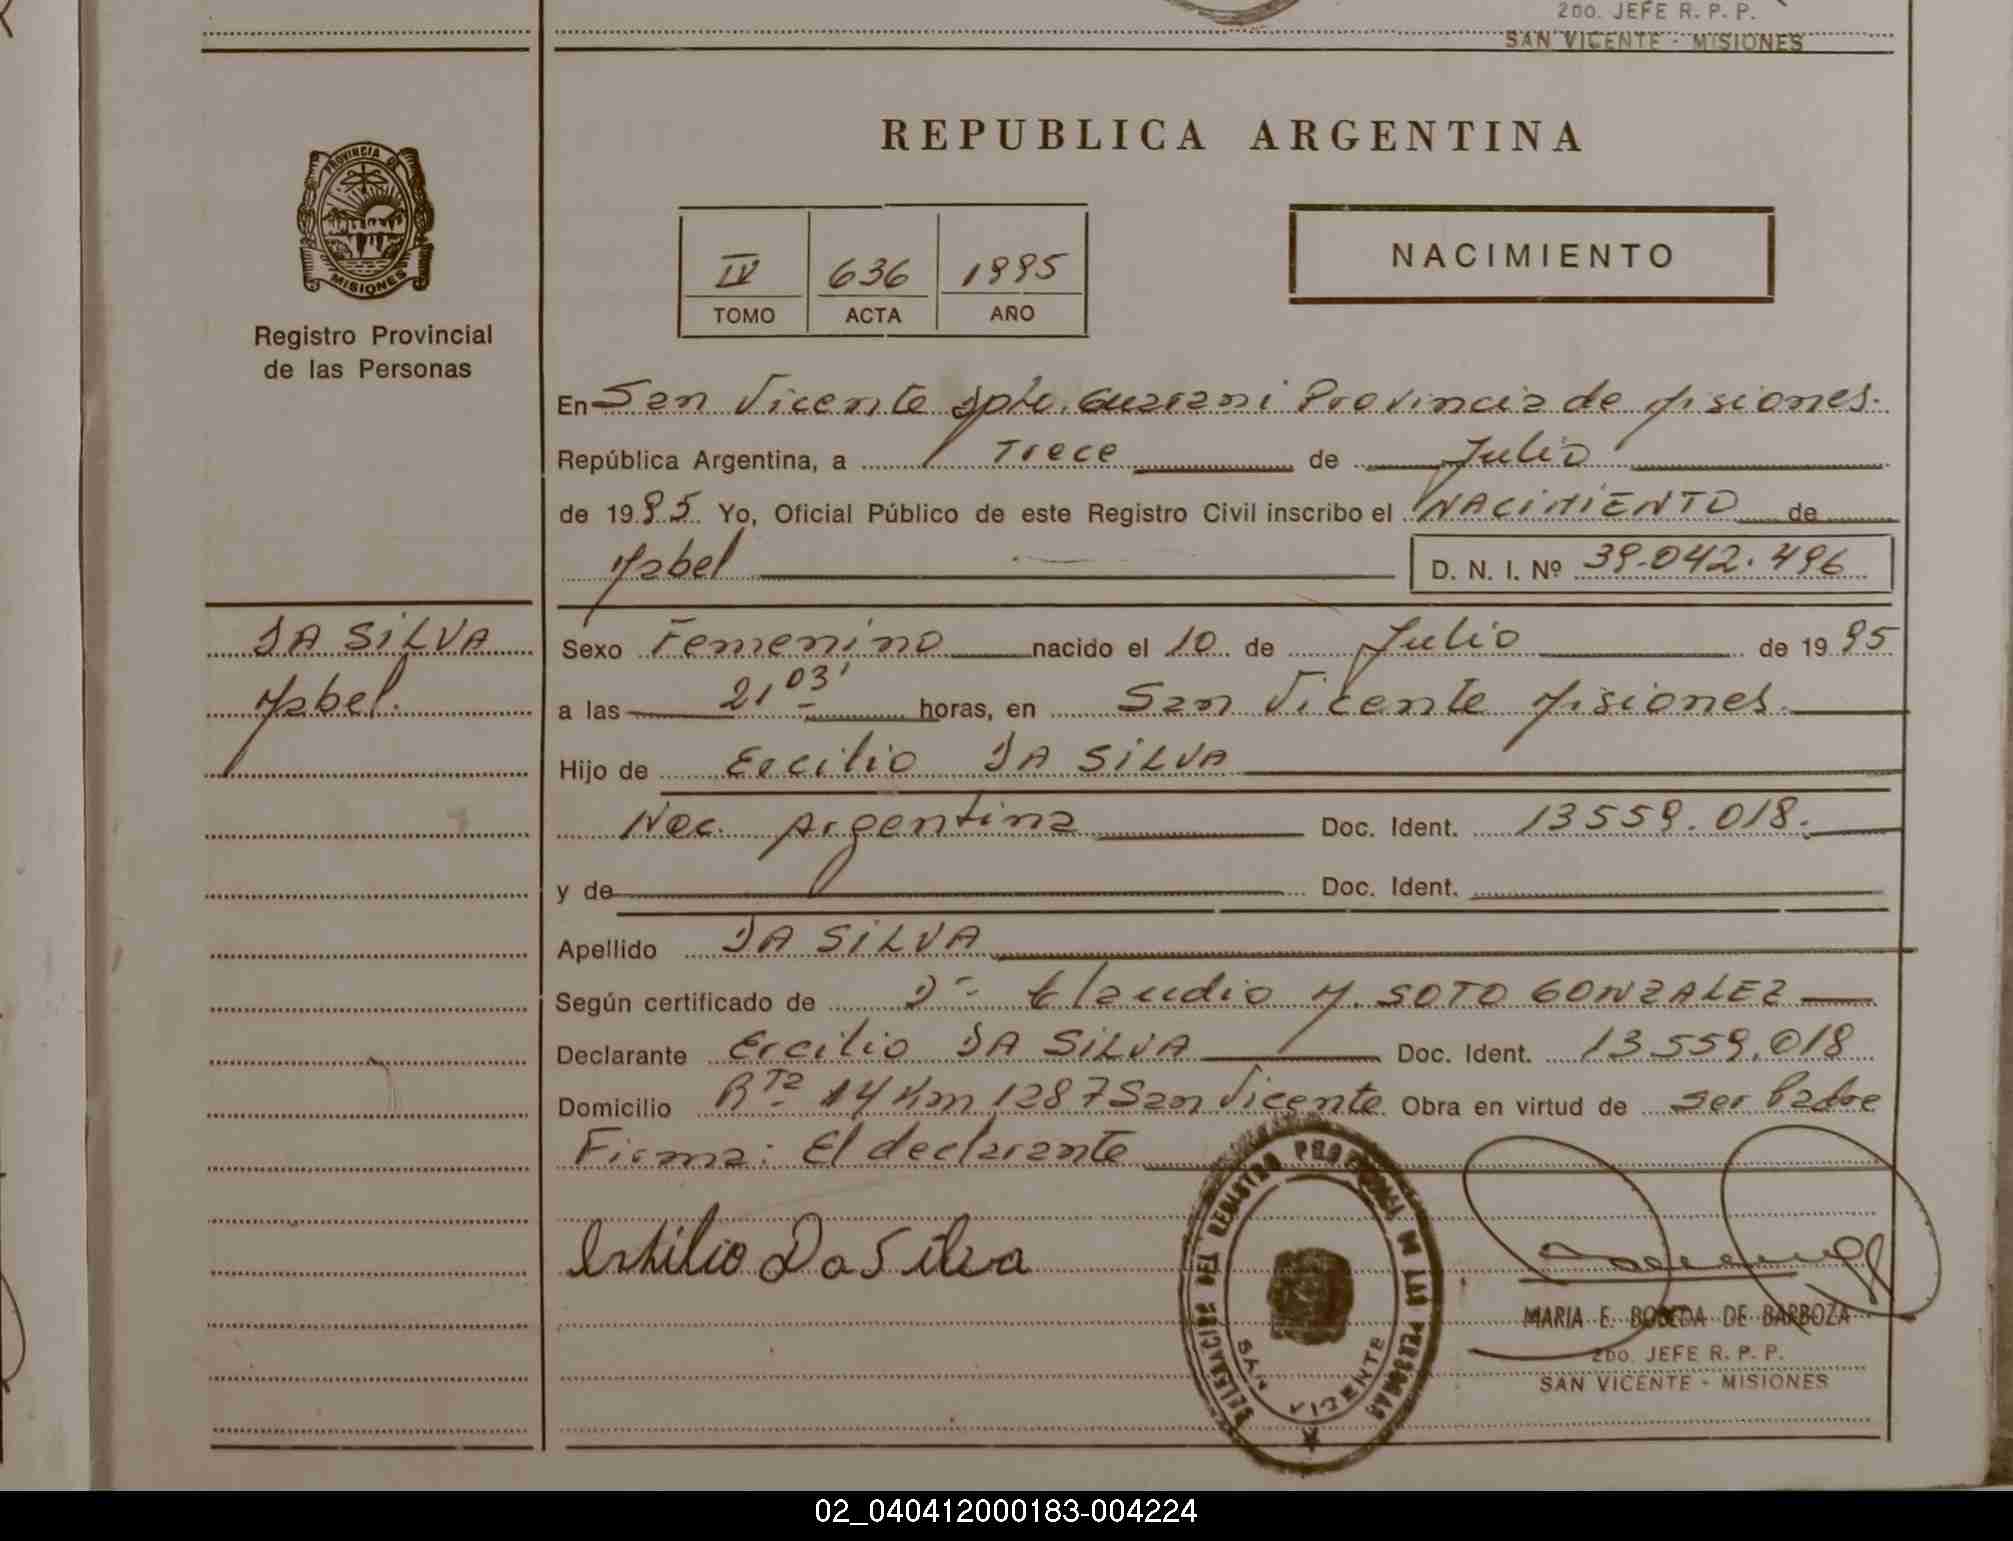 2DO. JEFE R. P. P.
SAN VICENTE - MISIONES
PROVINCIA DE
MISIONES
Registro Provincial
de las Personas
REPUBLICA ARGENTINA
IV 636 1995
TOMO ACTA AÑO
NACIMIENTO
En San Vicente Dpto. Guarani Provincia de Misiones.
República Argentina, a Trece de Julio
de 1995 Yo, Oficial Público de este Registro Civil inscribo el NACIMIENTO de
Mabel D. N. I. Nº 39.042.496
DA SILVA
Mabel.
Sexo Femenino nacido el 10 de Julio de 1995
a las 21,03' horas, en San Vicente Misiones.
Hijo de Ercilio DA SILVA
Nac. Argentina Doc. Ident. 13559.018.
y de Doc. Ident.
Apellido DA SILVA
Según certificado de Dr. Claudio M. SOTO GONZALEZ
Declarante Ercilio DA SILVA Doc. Ident. 13559.018
Domicilio Rta 14 Km 1287 San Vicente Obra en virtud de ser Padre
Firma: El declarante
Da Silva
DELEGACION DEL REGISTRO PROVINCIAL DE LAS PERSONAS
SAN VICENTE
MARIA E. BOBEDA DE BARBOZA
2DO. JEFE R. P. P.
SAN VICENTE - MISIONES
02_040412000183-004224